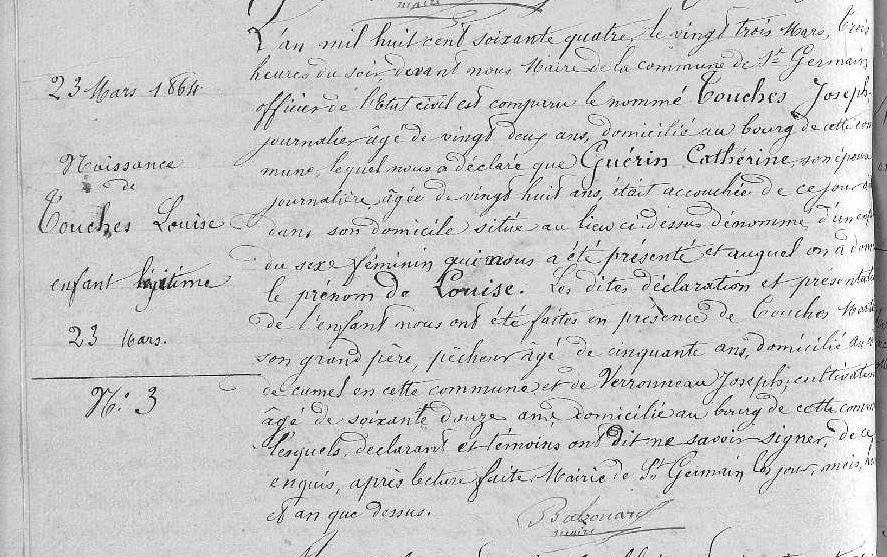 maire
23 Mars 1864
Naissance
de
Touches Louise
enfant légitime
23 Mars.
N° 3
L'an mil huit cent soixante quatre, le vingt trois Mars, trois
heures du soir devant nous Maire de la commune de St Germain
officier de l'Etat civil est comparu le nommé Touches Joseph
journalier âgé de vingt deux ans, domicilié au bourg de cette com
mune, lequel nous a déclaré que Guérin Cathérine, son épouse
journalière âgée de vingt huit ans, était accouchée de ce jour
dans son domicile situé au lieu ci-dessus dénommé, d'un enfant
du sexe féminin qui nous a été présenté et auquel on a donné
le prénom de Louise. Les dites déclaration et présentation
de l'enfant nous ont été faites en présence de Touches
son grand père, pêcheur âgé de cinquante ans, domicilié au
de cumel en cette commune et de Verronneau Joseph, cultivateur
âgé de soixante douze ans domicilié au bourg de cette commune
lesquels, déclarant et témoins ont dit ne savoir signer, de ce
enquis, après lecture faite. Mairie de St Germain les jour, mois,
et an que dessus.
maire